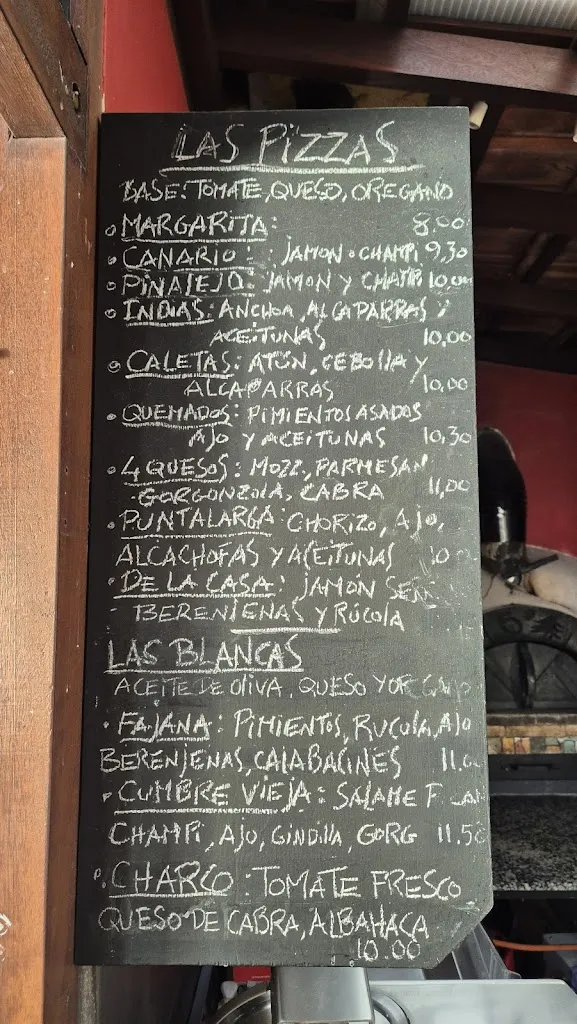 LAS PIZZAS
BASE: TOMATE, QUESO, OREGANO
MARGARITA: 8.00
CANARIO: JAMON O CHAMPI 9,30
PINALEJO: JAMON Y CHAMPI 10,00
INDIAS: ANCHOA, ALCAPARRAS Y
ACEITUNAS 10,00
CALETAS: ATÚN, CEBOLLA Y
ALCAPARRAS 10,00
QUEMADOS: PIMIENTOS ASADOS
AJO Y ACEITUNAS 10,30
4 QUESOS: MOZZ, PARMESAN
GORGONZOLA, CABRA 11,00
PUNTALARGA: CHORIZO, AJO,
ALCACHOFAS Y ACEITUNAS
DE LA CASA: JAMON
BERENJENAS Y RÚCOLA
LAS BLANCAS
ACEITE DE OLIVA, QUESO Y OREGANO
FAJANA: PIMIENTOS, RUCOLA, AJO
BERENJENAS, CALABACINES
CUMBRE VIEJA: SALAME
CHAMPI, AJO, GINDILLA, GORG 11.50
CHARCO: TOMATE FRESCO
QUESO DE CABRA, ALBAHACA
10.00